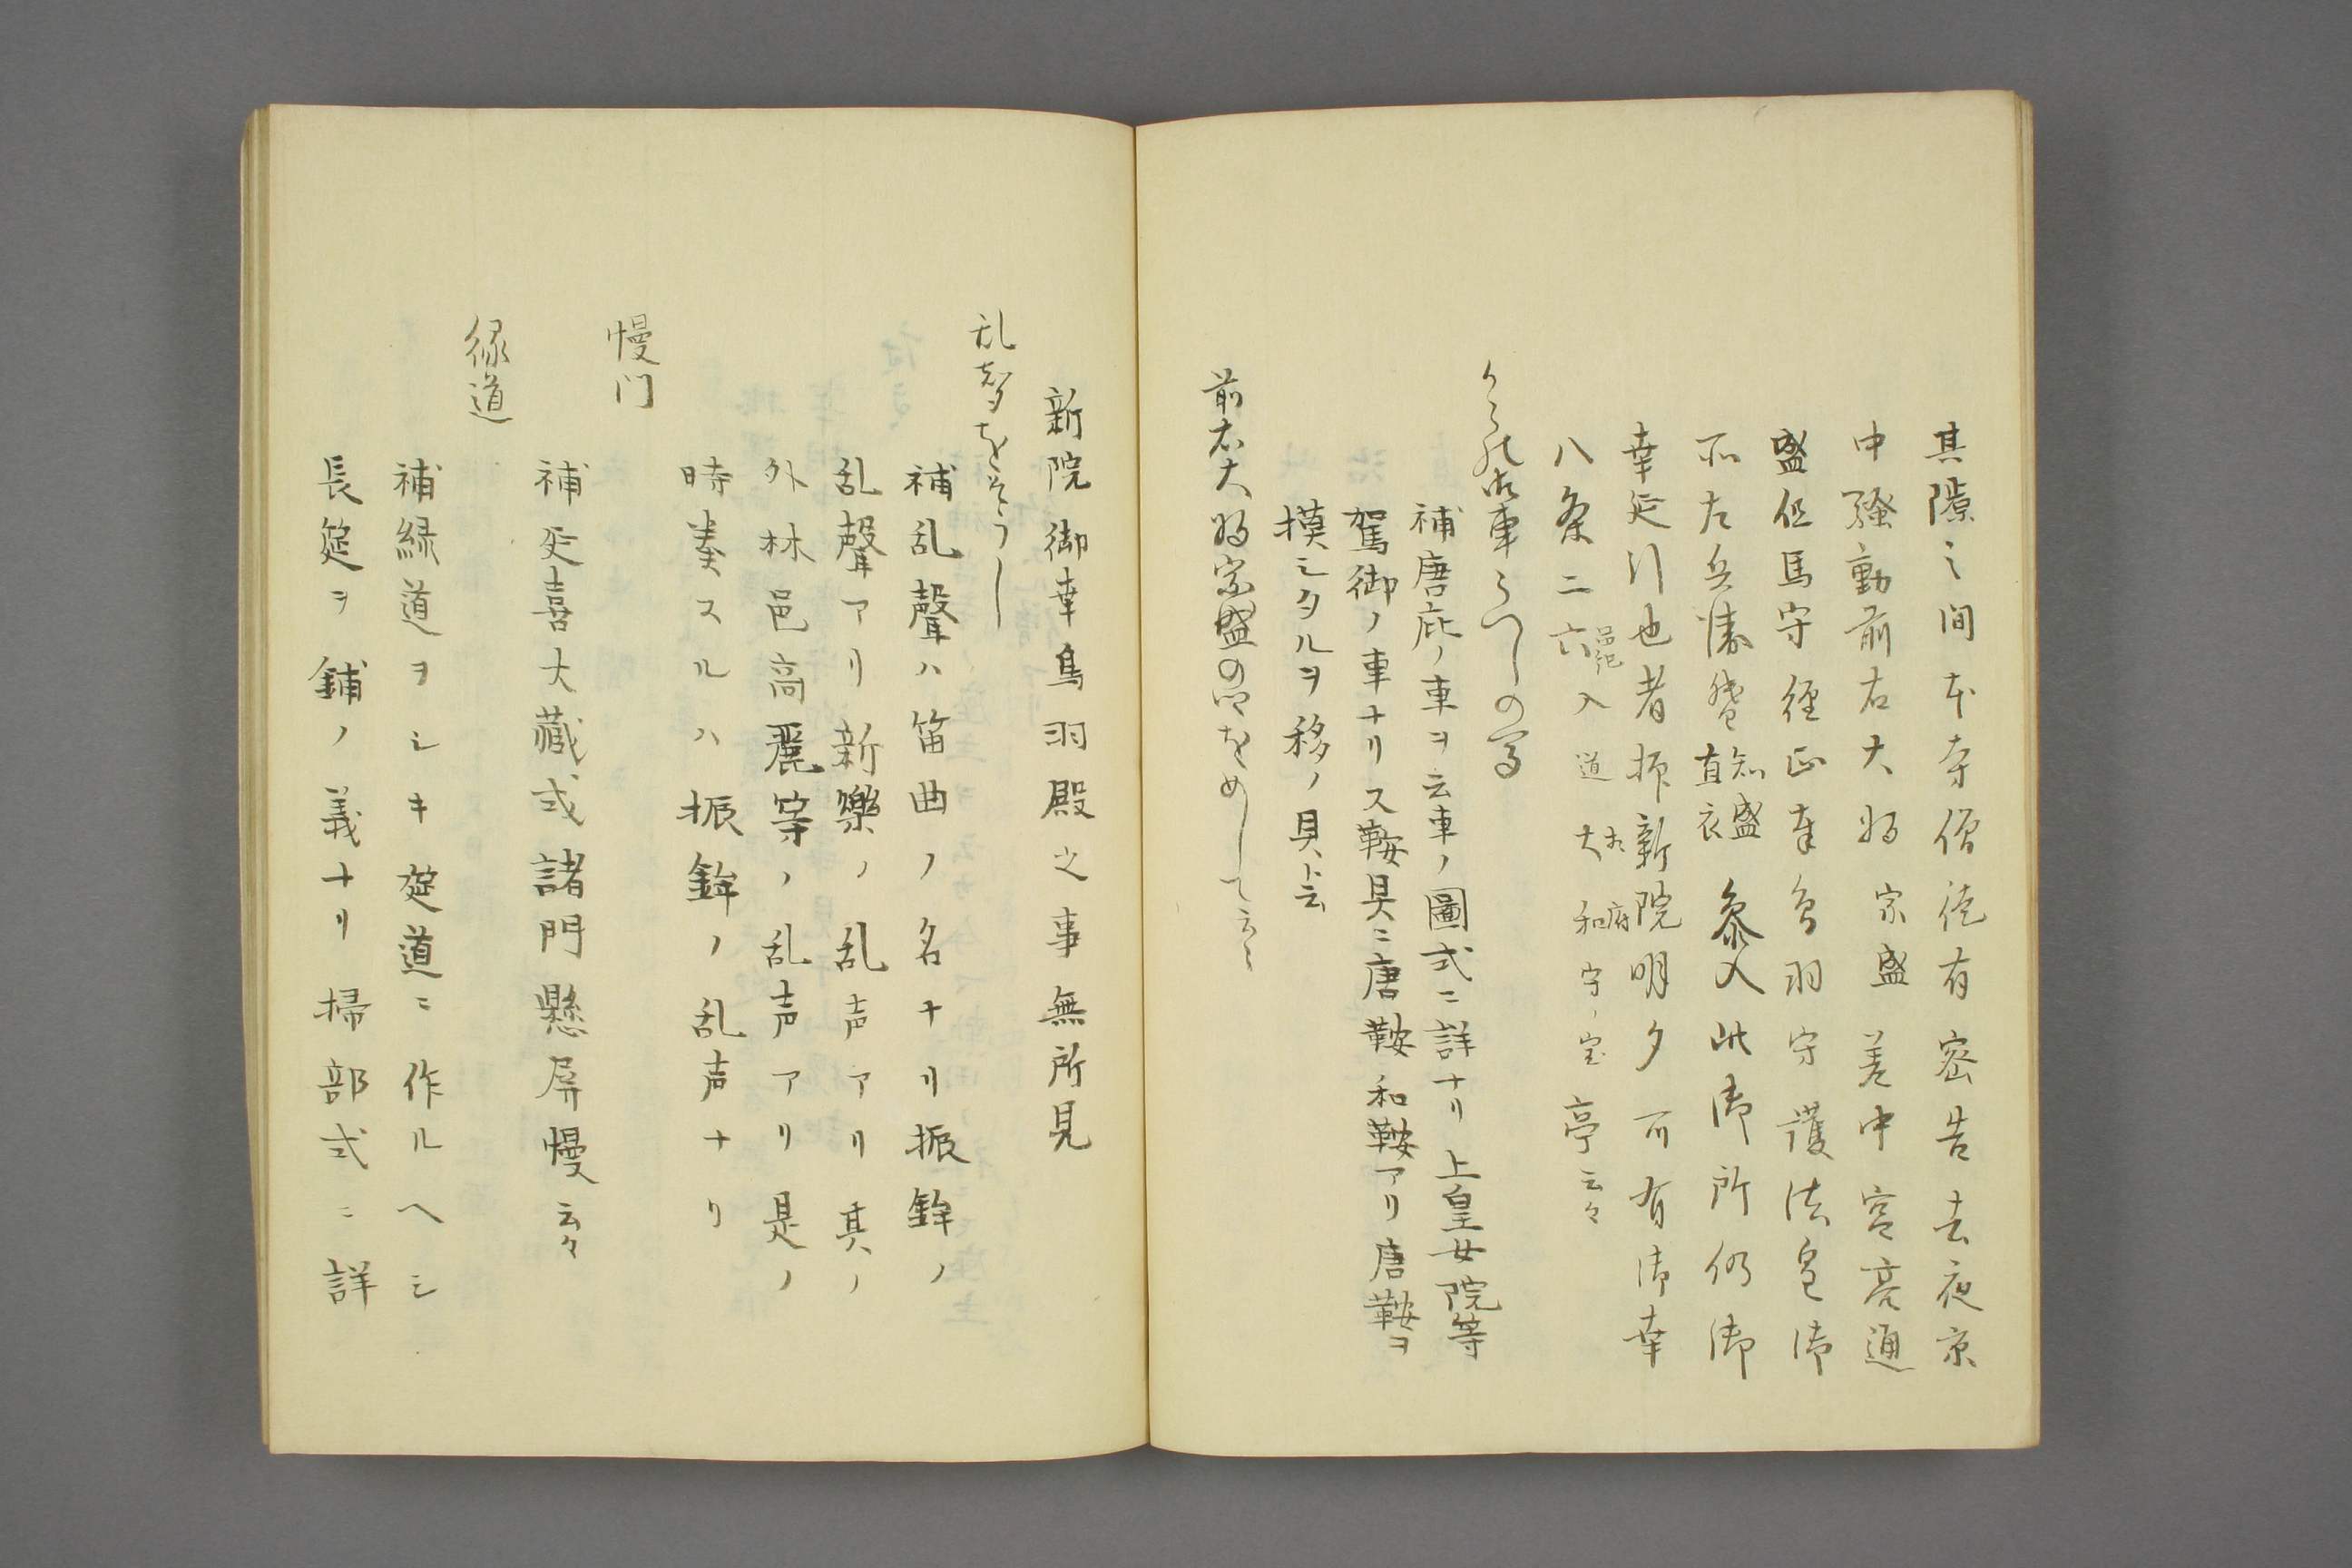 其隙之間本寺僧徒有密告去夜京
中騒動前右大将宗盛差中宮亮通
盛但馬守経正奉守護法皇御
左兵衛督知盛直衣参入此御所仍御
幸延引也者抑新院明夕可有御幸
八条二六入道大和守宅亭云々
御車うつしの馬
補唐庇ノ車ヲ云車ノ圖式ニ詳ナリ上皇女院等
駕御ノ車ナリス鞍具ニ唐鞍和鞍アリ唐鞍ヲ
摸シタルヲ移ノ具ト云
前右大将宗盛の卿をめして云々
新院御幸鳥羽殿之事無所見
乱声をそうし
補乱聲ハ笛曲ノ名ナリ振鉾ノ
乱聲アリ新樂ノ乱声アリ其ノ
外林邑高麗等ノ乱声アリ是ノ
時奏スルハ振鉾ノ乱声ナリ
幔门
補延喜大藏式諸門懸屏幔云々
縁道
補縁道ヲシキ筵道ニ作ルヘシ
長筵ヲ鋪ノ義ナリ掃部式ニ詳